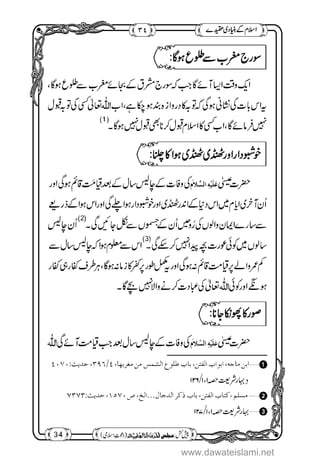 اسلام کے بنیادی عقیدے
٣٤
سورج مغرب سے طلوع ہوگا:
ایک وقت ایسا آئے گا جب کہ سورج مشرق کے بجائے مغرب سے طلوع ہوگا،
یہ اس بات کی نشانی ہوگی کہ توبہ کا دروازہ بند ہو چکا ہے، اب اللہ تعالیٰ کسی کی توبہ قبول
نہیں فرمائے گا، اب کسی کا اسلام لانا بھی قبول نہیں ہوگا۔ (1)
خوشبودار اور ٹھنڈی ٹھنڈی ہوا کا چلنا:
حضرت عیسیٰ عَلَيْهِ السَّلَام کی وفات کے چالیس سال کے بعد قیامت قائم ہوگی اور
اُن آخری ایام میں اس دنیا کے اندر ٹھنڈی اور خوشبودار ہوا چلے گی اور اس ہوا کے ذریعے
سارے ایمان والوں کی روحیں اُن کے جسموں سے نکل جائیں گی۔ (2) اُن چالیس
سالوں میں کوئی عورت بچہ پیدا نہیں کرے گی (3) اس سے معلوم ہوا کہ چالیس سال سے
کم عمر والے پر قیامت قائم نہ ہوگی اور یہ مکمل طور پر کفر کا زمانہ ہوگا، ہر طرف کفار ہی کفار
ہوں گے اور کوئی اللہ تعالیٰ کی عبادت کرنے والا نہیں بچے گا۔
صور کا پھونکا جانا:
حضرت عیسیٰ عَلَيْهِ السَّلَام کی وفات کے چالیس سال بعد جب قیامت آئے گی، اللہ
1 ...... ابن ماجه، ابواب الفتن، باب طلوع الشمس من مغربها، ٤/٣٩٦، حديث: ٤٠٧٠
وبہار شریعت، حصہ ا، ١/١٢٦
2 ...... مسلم، كتاب الفتن، باب ذكر الدجال...الخ، ص ١٥٧٠، حديث: ٧٣٧٣
3 ...... بہار شریعت، حصہ ا، ١/١٢٧
34
پیش کش:
(دعوت اسلامی)
34
www.dawateislami.net